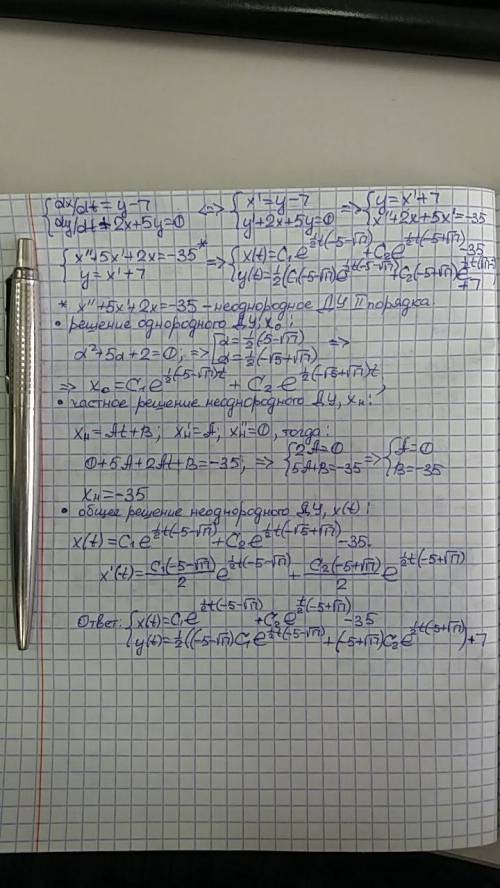 {dx/dt = y-7 {dy/dt+2x+5y=0 <=> {x'=y-7 {y'+2x+5y=0 => {y=x'+7 {x''+2x+5x'=-35
{x''+5x'+2x=-35* {y=x'+7 => {x(t)=C₁e^(½t(-5-√17))+C₂e^(½t(-5+√17))-35 {y(t)=½(C₁(-5-√17)e^(½t(-5-√17))+C₂(-5+√17)e^(½t(-5+√17)))+7
* x''+5x'+2x=-35 - неоднородное ДУ II порядка.
• решение однородного ДУ, x₀:
α²+5α+2=0; => {α=½(-5-√17) {α=½(-√5+√17) =>
=> x₀=C₁e^(½(-5-√17)t)+C₂e^(½(-√5+√17)t);
• частное решение неоднородного ДУ, xн:
xн=At+B; xн'=A; xн''=0, тогда:
0+5A+2At+B=-35; => {2A=0 {5A+B=-35 => {A=0 {B=-35
xн=-35
• общее решение неоднородного ДУ, x(t):
x(t)=C₁e^(½t(-5-√17))+C₂e^(½t(-√5+√17))-35.
x'(t)=C₁(-5-√17)/2 e^(½t(-5-√17)) + C₂(-5+√17)/2 e^(½t(-5+√17))
Ответ: {x(t)=C₁e^(½t(-5-√17))+C₂e^(½t(-5+√17))-35 {y(t)=½((-5-√17)C₁e^(½t(-5-√17))+(-5+√17)C₂e^(½t(-5+√17)))+7